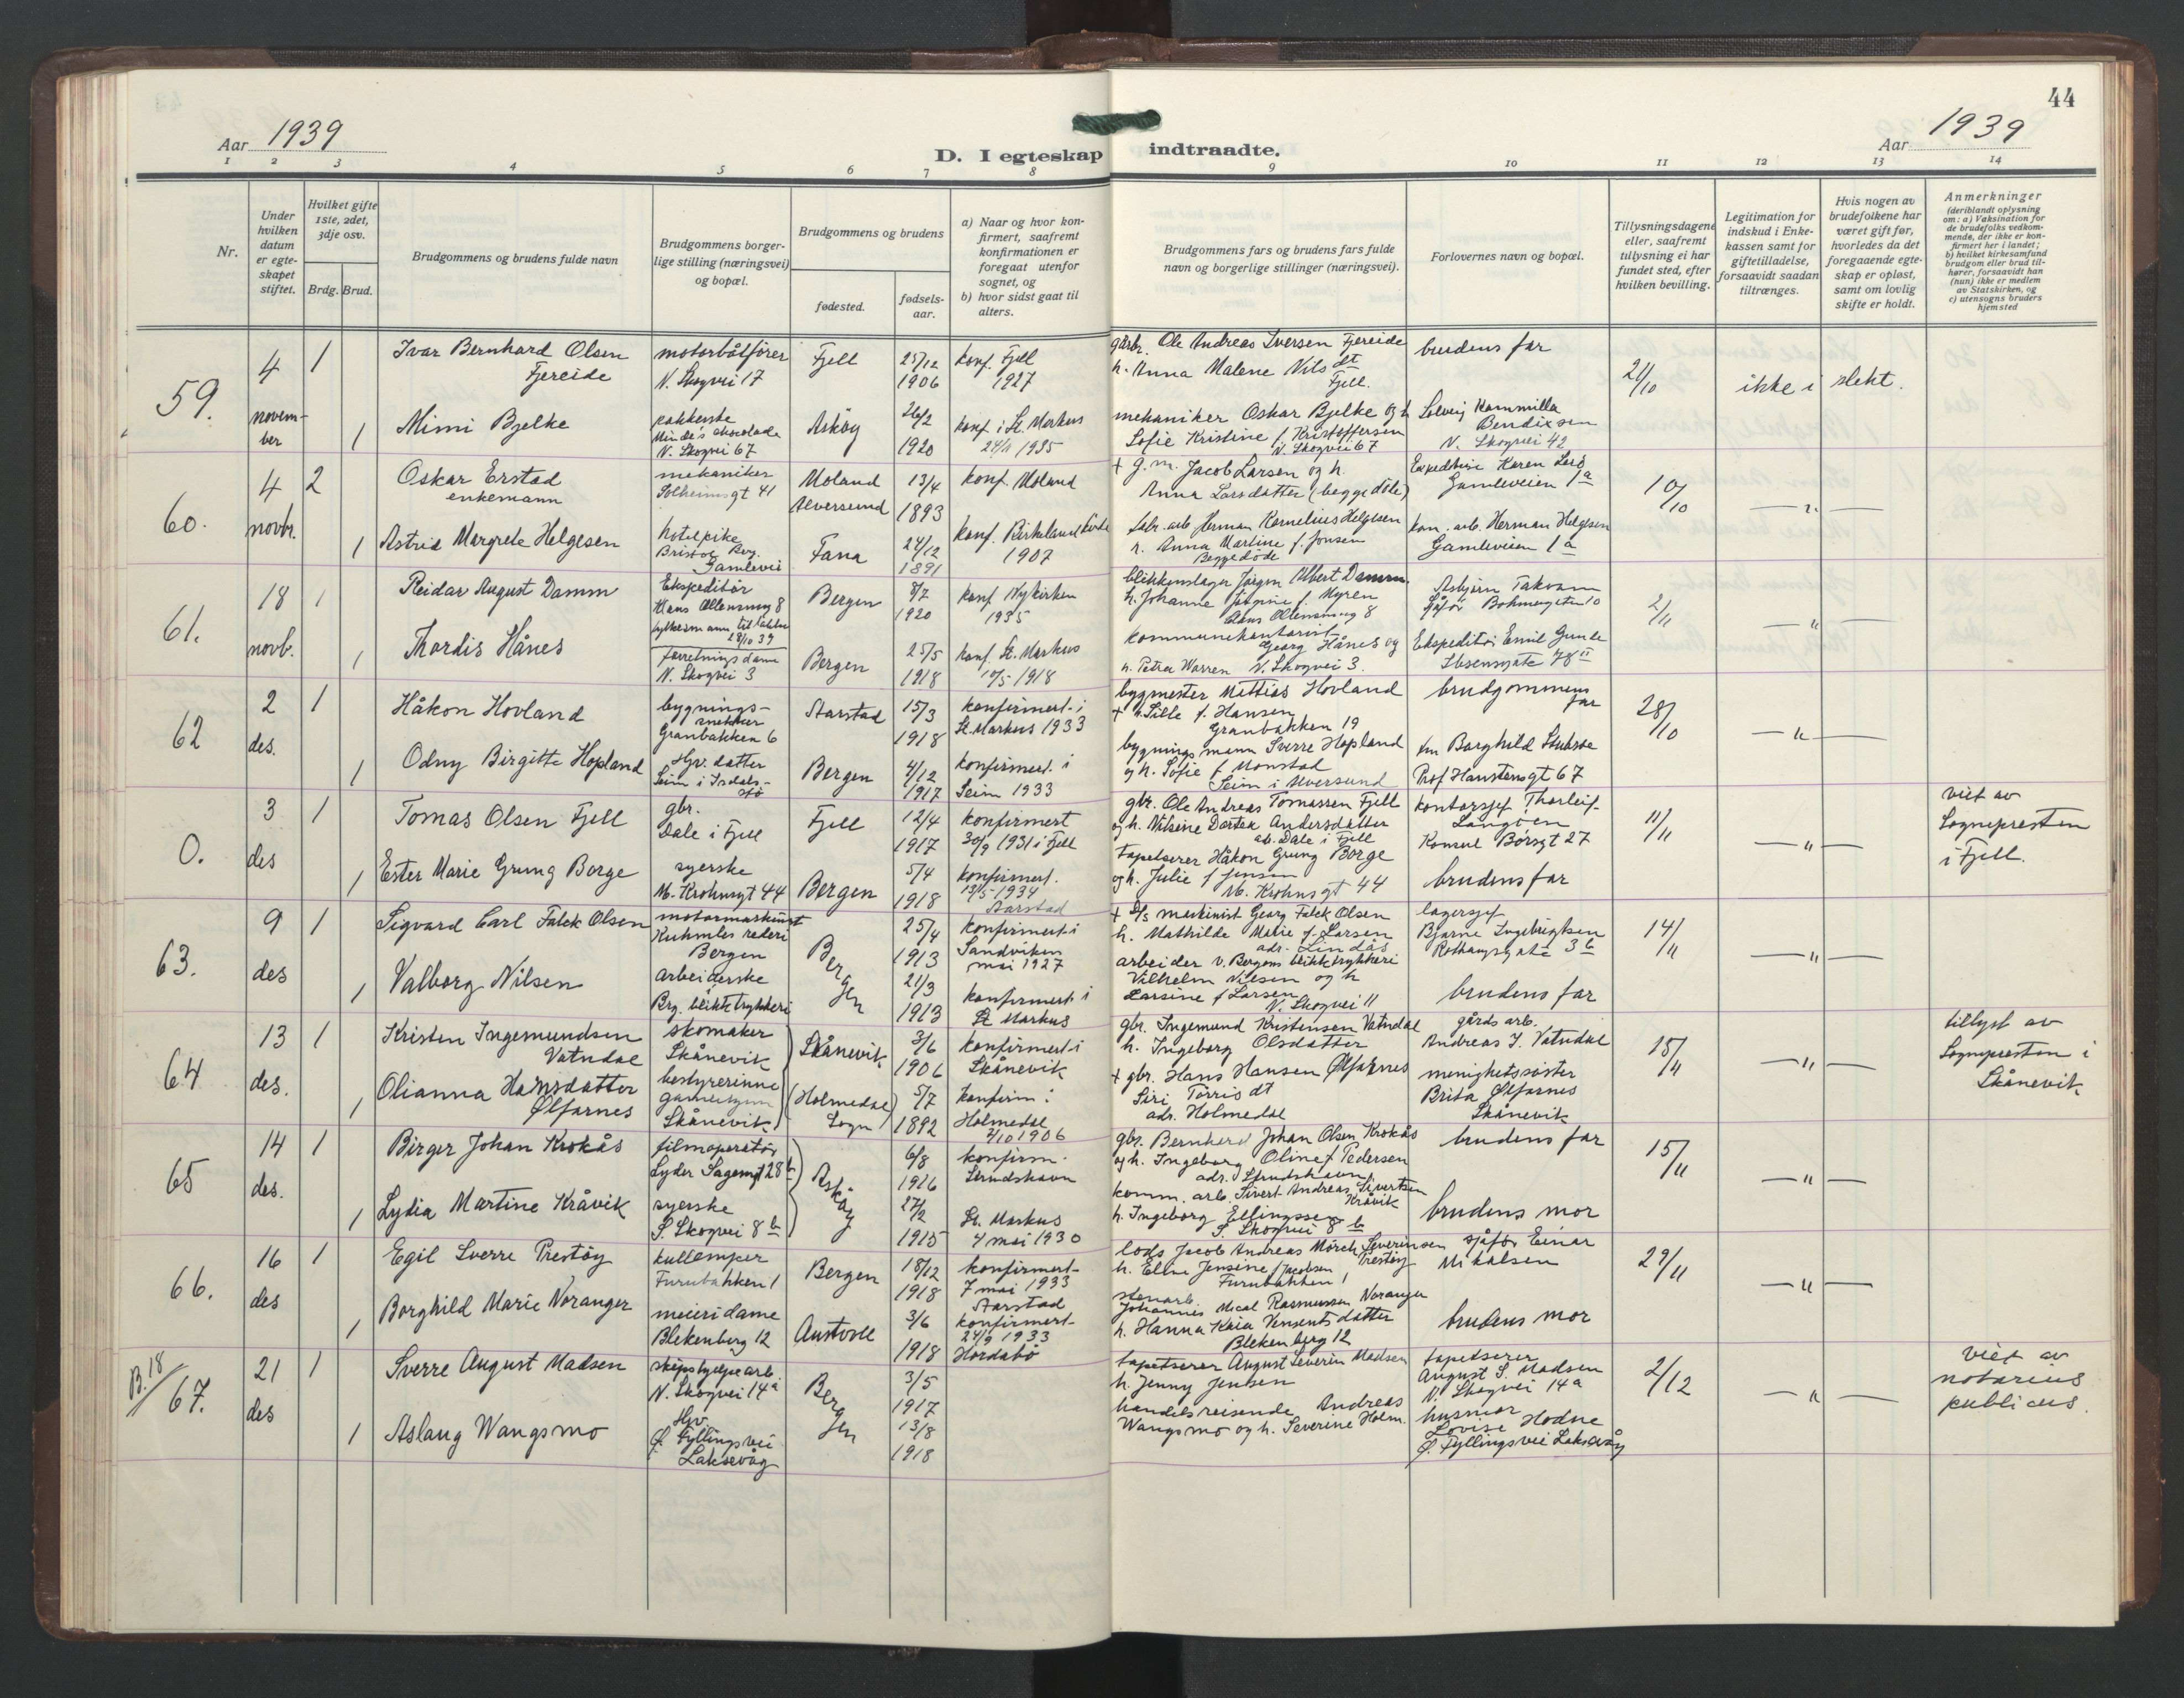 44
Aar 1939
D. I egteskap indtraadte.
Aar 1939
1 2 3 4 5 6 7 8 9 10 11 12 13 14
Nr.
Under hvilken datum er egte-skapet stiftet.
Hvilket gifte 1ste, 2det, 3dje osv.
Brdg. Brud.
Brudgommens og brudens fulde navn
Brudgommens borger-lige stilling (næringsvei) og bopæl.
Brudgommens og brudens
fødested.
fødsels-aar.
a) Naar og hvor kon-firmert, saafremt konfirmationen er foregaat utenfor sognet, og
b) hvor sidst gaat til alters.
Brudgommens fars og brudens fars fulde navn og borgerlige stillinger (næringsvei).
Forlovernes navn og bopæl.
Tillysningsdagene eller, saafremt tillysning ei har fundet sted, efter hvilken bevilling.
Legitimation for indskud i Enke-kassen samt for giftetilladelse, forsaavidt saadan tiltrænges.
Hvis nogen av brudefolkene har været gift før, hvorledes da det foregaaende egte-skap er opløst, samt om lovlig skifte er holdt.
Anmerkninger
(deriblandt oplysning om: a) Vaksination for de brudefolks vedkom-mende, der ikke er kon-firmert her i landet; b) hvilket kirkesamfund brudgom eller brud til-hører, forsaavidt han (hun) ikke er medlem av Statskirken, og c) utensogns bruders hjemsted
59.
4 november
1
Ivar Bernhard Olsen
Fjereide
motorbåtfører
N. Skogvei 17
Fjell
25/12 1906
konf. Fjell
1927
gårbr. Ole Andreas Iversen Fjereide
h. Anna Malene Nils dt
Fjell.
brudens far
21/10
ikke i slekt.
1
Mimi Bjelke
pakkerske
Minde's chocolade
N. Skogvei 67
Askøy
26/2 1920
konf. i St. Markus
1935
mekaniker Oskar Bjelke og h
Sofie Kristine f. Kristoffersen
N. Skogvei 67
Solveig Kammilla
Bendixsen
N. Skogvei 42
60.
4 novbr.
2
Oskar Erstad
enkemann
mekaniker
Solheimsgt 41
Moland
Alversund
13/4 1893
konf. Moland
+ g.m. Jacob Larsen og h.
Anna Larsdatter (begge døde)
Karen
Gamleveien 1a
10/10
— " —
1
Astrid Margrete Helgesen
hotelpike
Bristol Brg.
Gamlevei
Fana
24/12 1891
konf. Birkeland kirke
1907
fabr. arb Herman Kornelius Helgesen
h. Anna Martine f. Jonsen
Begge døde
kom. arb. Herman Helgesen
Gamleveien 1a
61.
18 novb.
1
Reidar August Damm
Ekspeditør
28/10 39
Bergen
8/7 1920
konf Nykirken
1935
blikkenslager Jørgen Albert Damm.
h. Johanne Jørgine f. Myren
Asbjørn Takvam
Sjåfør
2/11
— " —
1
Thordis Hånes
forretningsdame
N. Skogvei 3
Bergen
25/5 1918
konf. St. Markus
1918
kommunekontorist
Georg Hånes og
h. Petra Warren N. Skogvei 3.
Ekspeditør Emil Gunde
Ibsensgate 78 II
62
2 des.
1
Håkon Hovland
bygnings-
snekker
Granbakken 6
Aarstad
15/3 1918
konfirmert i
St. Markus 1933
bygmester Mattias Hovland
+ h. Sille f. Hansen
Granbakken 19
brudgommens
far
28/10
— " —
1
Odny Birgitte Hopland
Hjv. datter
Seim i Isdals-
stø
Bergen
4/12 1917
konfirmert. i
Seim 1933
bygningsmann Sverre Hopland
og h. Sofie f Monstad
Seim i Alversund
fru Borghild
Prof Hanstensgt 67
0.
3 des
1
Tomas Olsen Fjell
gbr.
Dale i Fjell
Fjell
12/4 1917
konfirmert
30/9 1931 i Fjell
gbr. Ole Andreas Tomassen Fjell
og h. Nilsine Dortea Andersdatter
ad. Dale i Fjell
kontorsjef Thorleif
Langøen
Konsul Børsgt 27
11/11
— " —
viet av
Sognepresten
i Fjell.
1
Ester Marie Grung Borge
syerske
M. Krohnsgt 44
Bergen
5/4 1918
konfirmert.
13/5 1934
Aarstad
tapetserer Håkon Grung Borge
og h. Julie f Jensen
M. Krohnsgt 44
brudens far
63.
9 des
1
Sigvard Carl Falck Olsen
motormaskinist
Kuhnles rederi
Bergen
Bergen
25/4 1913
konfirmert i
Sandviken
mai 1927
+ D/S maskinist Georg Falck Olsen
h. Mathilde Marie f. Larsen
adr. Lindås
lagersjef
Bjarne Ingebrigtsen
Rothaugsgate 3b
14/11
— " —
1
Valborg Nilsen
arbeiderske
Brg. blikktrykkeri
21/3 1913
konfirmert i
St Markus
arbeider v. Bergens blikktrykkeri
Vilhelm Nilsen og h
Larsine f Larsen
N. Skogvei 11
brudens far
64
13 des.
1
Kristen Ingemundsen
Vatndal
skomaker
Skånevik
Skånevik
3/6 1906
konfirmert i
Skånevik
gbr. Ingemund Kristensen Vatndal
h. Ingeborg Olsdatter
gårds arb.
Andreas I. Vatndal
15/11
— " —
tillyst av
Sognepresten i
Skånevik
1
Olianna Hansdatter
Ølfarnes
bestyrerinne
gamlehjem
Skånevik
Holmedal
Sogn
5/7 1892
konfirm i
Holmedal
2/10 1906
+ gbr. Hans Hansen Ølfarnes
Siri Torris dt
adr. Holmedal
menighetssøster
Brita Ølfarnes
Skånevik
65
14 des.
1
Birger Johan Krokås
filmoperatør
Lyder Sagensgt 28b
Askøy
6/8 1916
konfirm.
gbr. Bernhard Johan Olsen Krokås
og h. Ingeborg Oline f Pedersen
brudens far
15/11
— " —
1
Lydia Martine Kråvik
syerske
S. Skogvei 8b
27/2 1915
St. Markus
4 mai 1930
komm. arb. Sivert Andreas Sivertsen
Kråvik
h. Ingeborg Ellingssen
S. Skogvei 8b
brudens mor
66.
16 des
1
Egil Sverre Prestøy
kullemper
Furubakken 1
Bergen
18/12 1918
konfirmert
7 mai 1933
Aarstad
lods Jacob Andreas Mörch Severinsen
Prestøy
h. Elline Jensine f Jacobsen
Furubakken 1
sjåfør Einar
Mikalsen
29/11
— " —
1
Borghild Marie Noranger
meieridame
Blekenberg 12
Austvoll
3/6 1918
konfirmert
24/9 1933
Hordabø
stenarb.
Johannes Mical Rasmussen Noranger
h. Hanna Kaia Vensents datter
Blekenberg 12
brudens mor
B. 18/67.
21 des
1
Sverre August Madsen
skipshjelpearb.
N. Skogvei 14a
Bergen
3/5 1917
tapetserer August Severin Madsen
h. Jenny Jensen
tapetserer
August S. Madsen
N. Skogvei 14a
2/12
— " —
viet av
notarius
publicus.
1
Aslaug Wangsmo
Hjv.
Ø. Fyllingsvei
Laksevåg
13/8 1918
handelsreisende Andreas
Wangsmo og h. Severine Holm.
husmor
Lovise Hodne
Ø. Fyllingsvei Laksevåg